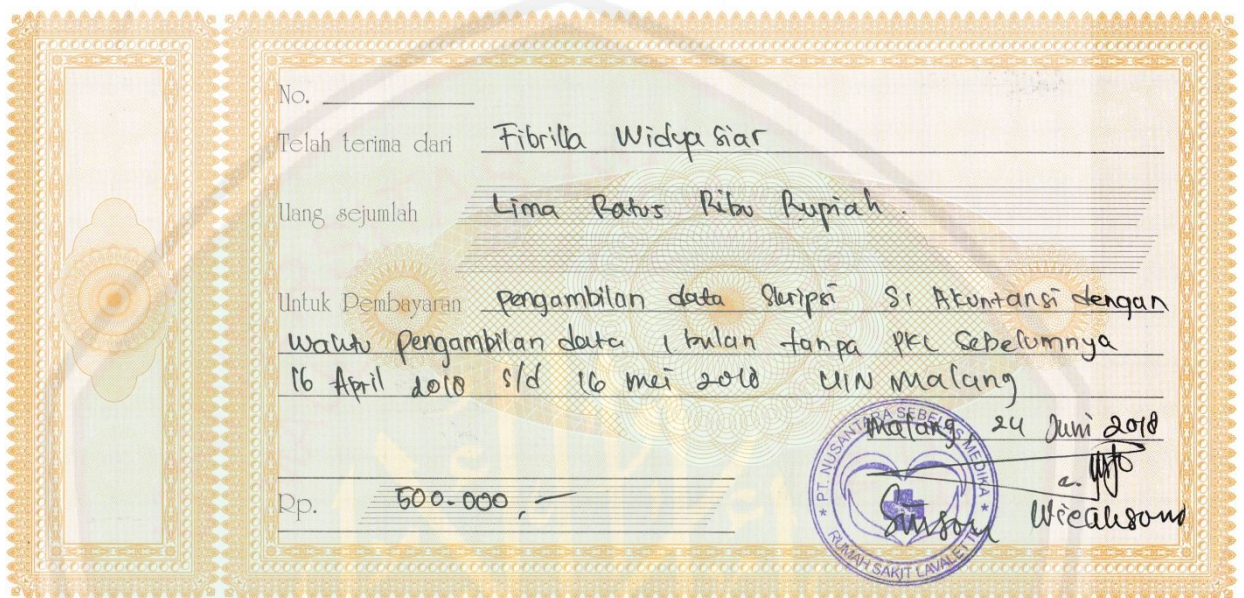 No.
Telah terima dari Fibrilla Widya Siar
Uang sejumlah Lima Ratus Ribu Rupiah.
Untuk Pembayaran pengambilan data Skripsi S1 Akuntansi dengan
waktu pengambilan data 1 bulan tanpa PKL Sebelumnya
16 April 2018 s/d 16 mei 2018 UIN Malang
Malang, 24 Juni 2018
Rp. 500.000,-
a.
Wicaksono
* PT. NUSANTARA SEBELAS MEDIKA *
RUMAH SAKIT LAVALETTE